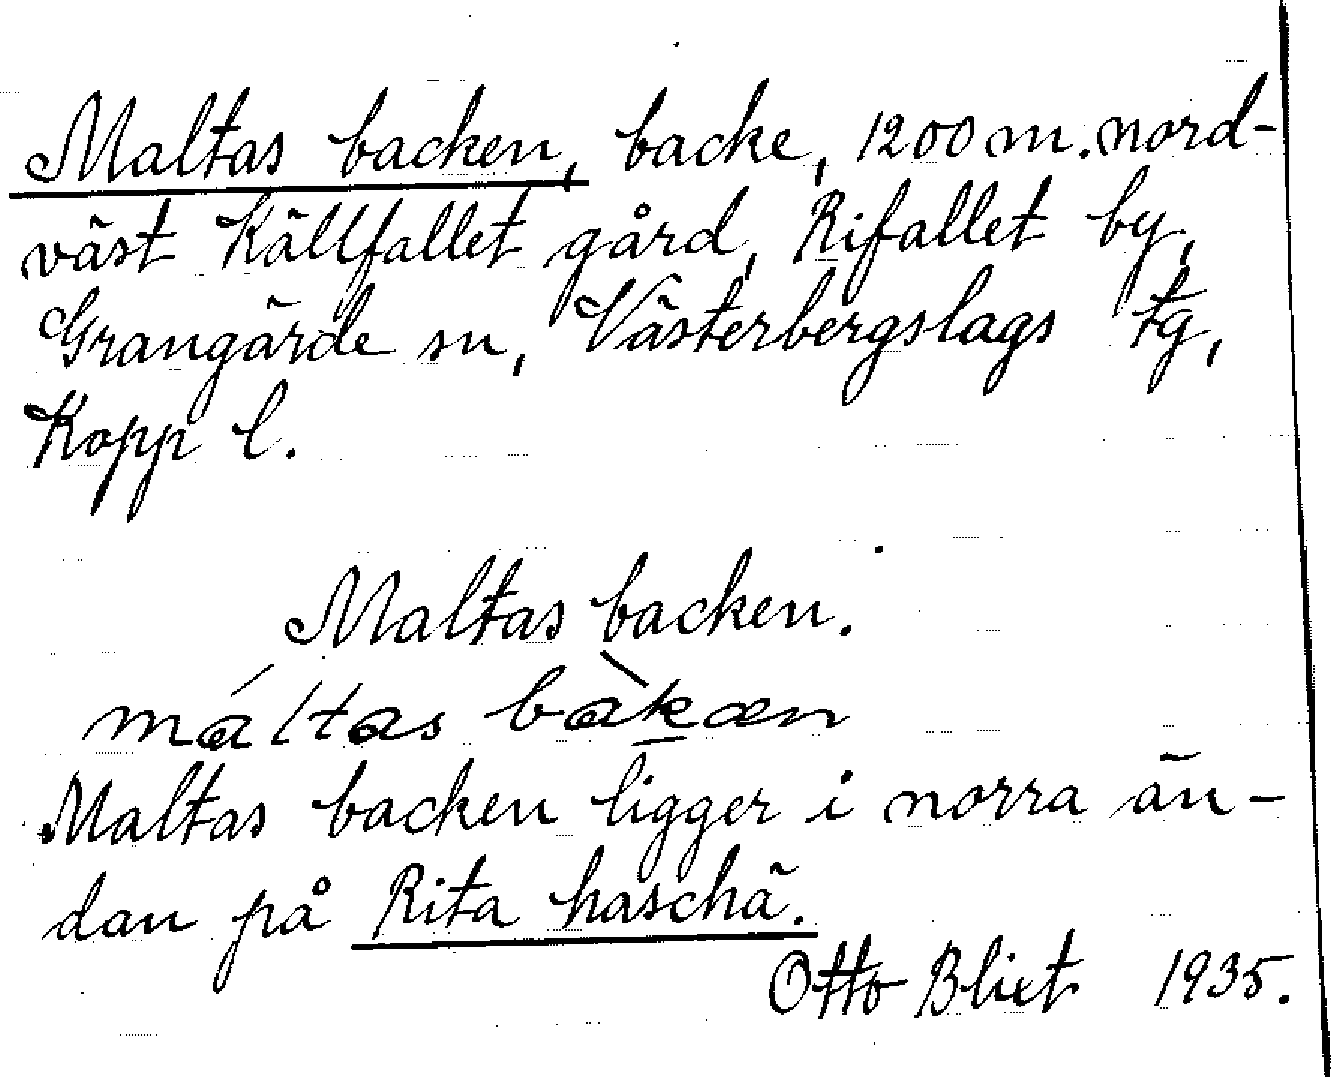 Maltas backen, backe, 1200 m. nord-
väst Källfallet gård, Rifallet by,
Grangärde sn, Västerbergslags tg,
Kopp l.
Maltas backen.
máltas bàkæn
Maltas backen ligger i norra än-
dan på Rita haschä.
Otto Blixt 1935.